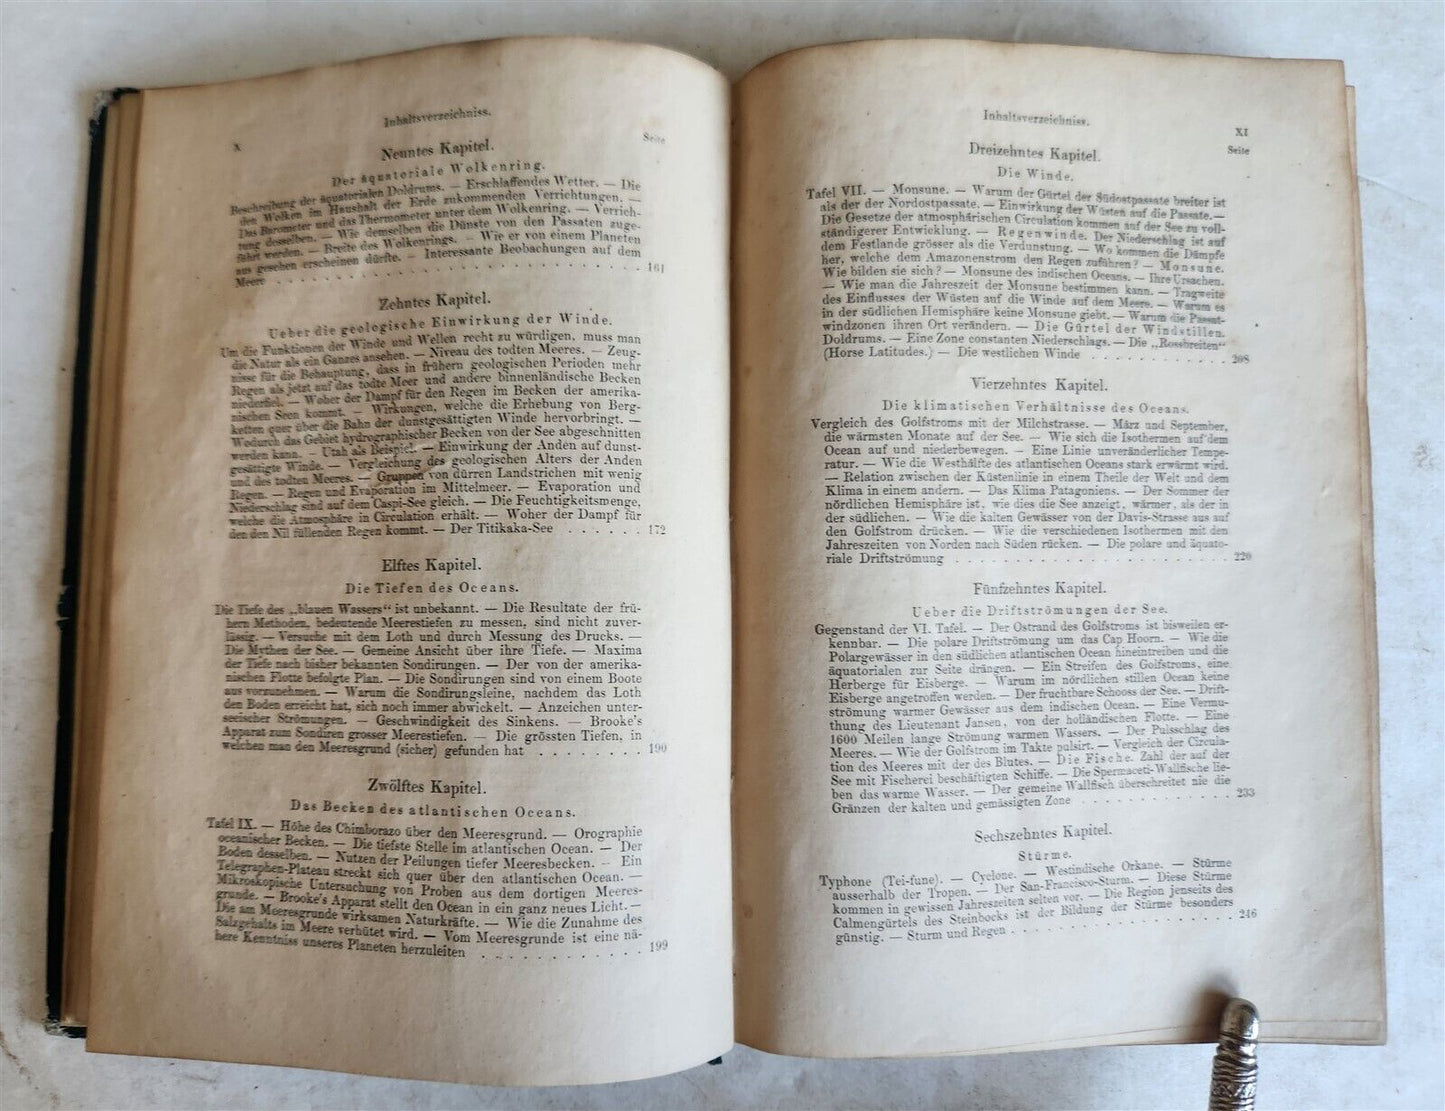 X
Inhaltsverzeichniss.
Seite
Neuntes Kapitel.
Der äquatoriale Wolkenring.
Beschreibung der äquatorialen Doldrums. — Erschlaffendes Wetter. — Die
den Wolken im Haushalt der Erde zukommenden Verrichtungen. —
Das Barometer und das Thermometer unter dem Wolkenring. — Verrich-
tung desselben. — Wie demselben die Dünste von den Passaten zuge-
führt werden. — Breite des Wolkenrings. — Wie er von einem Planeten
aus gesehen erscheinen dürfte. — Interessante Beobachtungen auf dem
Meere . . . . . . . . . . . . . . . . . . . . . 161
Zehntes Kapitel.
Ueber die geologische Einwirkung der Winde.
Um die Funktionen der Winde und Wellen recht zu würdigen, muss man
die Natur als ein Ganzes ansehen. — Niveau des todten Meeres. — Zeug-
nisse für die Behauptung, dass in frühern geologischen Perioden mehr
Regen als jetzt auf das todte Meer und andere binnenländische Becken
niederfiel. — Woher der Dampf für den Regen im Becken der amerika-
nischen Seen kommt. — Wirkungen, welche die Erhebung von Berg-
ketten quer über die Bahn der dunstgesättigten Winde hervorbringt. —
Wodurch das Gebiet hydrographischer Becken von der See abgeschnitten
werden kann. — Utah als Beispiel. — Einwirkung der Anden auf dunst-
gesättigte Winde. — Vergleichung des geologischen Alters der Anden
und des todten Meeres. — Gruppen von dürren Landstrichen mit wenig
Regen. — Regen und Evaporation im Mittelmeer. — Evaporation und
Niederschlag sind auf dem Caspi-See gleich. — Die Feuchtigkeitsmenge,
welche die Atmosphäre in Circulation erhält. — Woher der Dampf für
den den Nil füllenden Regen kommt. — Der Titikaka-See . . . . . . 172
Elftes Kapitel.
Die Tiefen des Oceans.
Die Tiefe des „blauen Wassers" ist unbekannt. — Die Resultate der frü-
hern Methoden, bedeutende Meerestiefen zu messen, sind nicht zuver-
lässig. — Versuche mit dem Loth und durch Messung des Drucks. —
Die Mythen der See. — Gemeine Ansicht über ihre Tiefe. — Maxima
der Tiefe nach bisher bekannten Sondirungen. — Der von der amerika-
nischen Flotte befolgte Plan. — Die Sondirungen sind von einem Boote
aus vorzunehmen. — Warum die Sondirungsleine, nachdem das Loth
den Boden erreicht hat, sich noch immer abwickelt. — Anzeichen unter-
seeischer Strömungen. — Geschwindigkeit des Sinkens. — Brooke's
Apparat zum Sondiren grosser Meerestiefen. — Die grössten Tiefen, in
welchen man den Meeresgrund (sicher) gefunden hat . . . . . . . . 190
Zwölftes Kapitel.
Das Becken des atlantischen Oceans.
Tafel IX. — Höhe des Chimborazo über den Meeresgrund. — Orographie
oceanischer Becken. — Die tiefste Stelle im atlantischen Ocean. — Der
Boden desselben. — Nutzen der Peilungen tiefer Meeresbecken. — Ein
Telegraphen-Plateau streckt sich quer über den atlantischen Ocean. —
Mikroskopische Untersuchung von Proben aus dem dortigen Meeres-
grunde. — Brooke's Apparat stellt den Ocean in ein ganz neues Licht. —
Die am Meeresgrunde wirksamen Naturkräfte. — Wie die Zunahme des
Salzgehalts im Meere verhütet wird. — Vom Meeresgrunde ist eine nä-
here Kenntniss unseres Planeten herzuleiten . . . . . . . . . . . . 199
Inhaltsverzeichniss.
XI
Seite
Dreizehntes Kapitel.
Die Winde.
Tafel VII. — Monsune. — Warum der Gürtel der Südostpassate breiter ist
als der der Nordostpassate. — Einwirkung der Wüsten auf die Passate. —
Die Gesetze der atmosphärischen Circulation kommen auf der See zu voll-
ständigerer Entwicklung. — Regenwinde. Der Niederschlag ist auf
dem Festlande grösser als die Verdunstung. — Wo kommen die Dämpfe
her, welche dem Amazonenstrom den Regen zuführen? — Monsune.
Wie bilden sie sich? — Monsune des indischen Oceans. — Ihre Ursachen.
— Wie man die Jahreszeit der Monsune bestimmen kann. — Tragweite
des Einflusses der Wüsten auf die Winde auf dem Meere. — Warum es
in der südlichen Hemisphäre keine Monsune giebt. — Warum die Passat-
windzonen ihren Ort verändern. — Die Gürtel der Windstillen.
Doldrums. — Eine Zone constanten Niederschlags. — Die „Rossbreiten"
(Horse Latitudes.) — Die westlichen Winde . . . . . . . . . . . . 208
Vierzehntes Kapitel.
Die klimatischen Verhältnisse des Oceans.
Vergleich des Golfstroms mit der Milchstrasse. — März und September,
die wärmsten Monate auf der See. — Wie sich die Isothermen auf dem
Ocean auf und niederbewegen. — Eine Linie unveränderlicher Tempe-
ratur. — Wie die Westhälfte des atlantischen Oceans stark erwärmt wird.
— Relation zwischen der Küstenlinie in einem Theile der Welt und dem
Klima in einem andern. — Das Klima Patagoniens. — Der Sommer der
nördlichen Hemisphäre ist, wie dies die See anzeigt, wärmer, als der in
der südlichen. — Wie die kalten Gewässer von der Davis-Strasse aus auf
den Golfstrom drücken. — Wie die verschiedenen Isothermen mit den
Jahreszeiten von Norden nach Süden rücken. — Die polare und äquato-
riale Driftströmung . . . . . . . . . . . . . . . . . . . . . . 220
Fünfzehntes Kapitel.
Ueber die Driftströmungen der See.
Gegenstand der VI. Tafel. — Der Ostrand des Golfstroms ist bisweilen er-
kennbar. — Die polare Driftströmung um das Cap Hoorn. — Wie die
Polargewässer in den südlichen atlantischen Ocean hineintreiben und die
äquatorialen zur Seite drängen. — Ein Streifen des Golfstroms, eine
Herberge für Eisberge. — Warum im nördlichen stillen Ocean keine
Eisberge angetroffen werden. — Der fruchtbare Schooss der See. — Drift-
strömung warmer Gewässer aus dem indischen Ocean. — Eine Vermu-
thung des Lieutenant Jansen, von der holländischen Flotte. — Eine
1600 Meilen lange Strömung warmen Wassers. — Der Pulsschlag des
Meeres. — Wie der Golfstrom im Takte pulsirt. — Vergleich der Circula-
tion des Meeres mit der des Blutes. — Die Fische. Zahl der auf der
See mit Fischerei beschäftigten Schiffe. — Die Spermaceti-Wallfische lie-
ben das warme Wasser. — Der gemeine Wallfisch überschreitet nie die
Gränzen der kalten und gemässigten Zone . . . . . . . . . . . . . 233
Sechszehntes Kapitel.
Stürme.
Typhone (Tei-fune). — Cyclone. — Westindische Orkane. — Stürme
ausserhalb der Tropen. — Der San-Francisco-Sturm. — Diese Stürme
kommen in gewissen Jahreszeiten selten vor. — Die Region jenseits des
Calmengürtels des Steinbocks ist der Bildung der Stürme besonders
günstig. — Sturm und Regen . . . . . . . . . . . . . . . . . . . 246